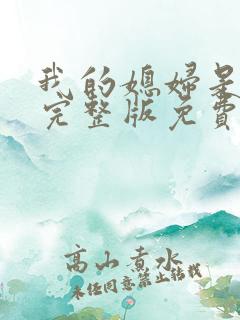 我的媳妇是
完整版免费
高山煮水
未经同意禁止转载